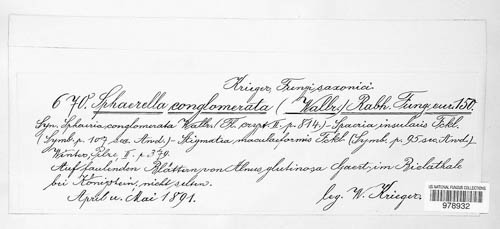 Krieger, Fungi saxonici.
670. Sphaerella conglomerata (Wallr.) Rabh. Fung. eur. 150.
Syn. Sphaeria conglomerata Wallr. (Fl. crypt. II. p. 814.) – insularis Fckl.
(Symb. p. 107 sec. And.) – Stigmatea maculaeformis Fckl. (Symb. p. 95 sec. And.)
Winter, Pilze II. p. 379.
Auf faulenden Blättern von Alnus glutinosa Gaert. im Bielathale
bei Königstein, nicht selten.
April u. Mai 1891.
leg. W. Krieger.
US NATIONAL FUNGUS COLLECTIONS
978932